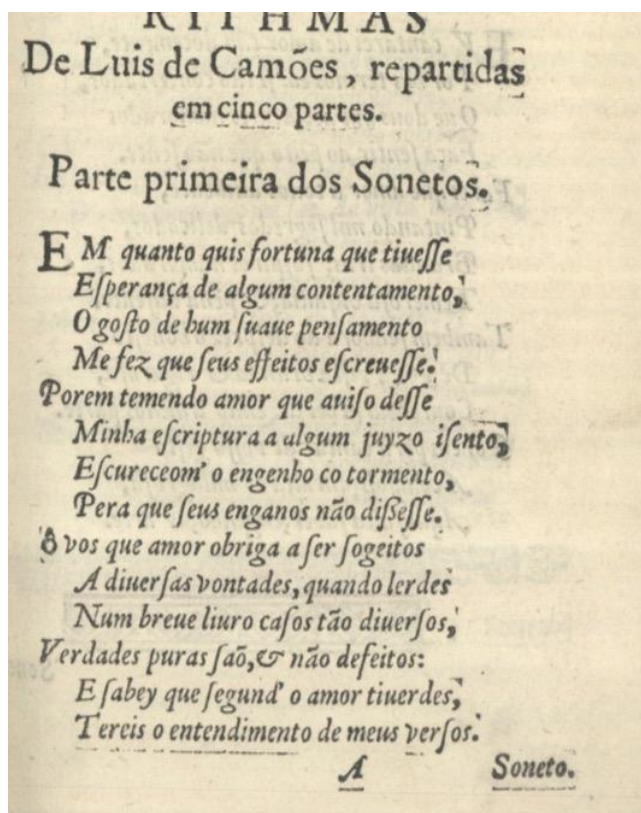 RITHMAS
De Luis de Camões, repartidas
em cinco partes.
Parte primeira dos Sonetos.
EM quanto quis fortuna que tiueſſe
Eſperança de algum contentamento,
O goſto de hum ſuaue penſamento
Me fez que ſeus effeitos eſcreueſſe.
Porem temendo amor que auiſo deſſe
Minha eſcriptura a algum juyzo iſento,
Eſcureceom' o engenho co tormento,
Pera que ſeus enganos não dißeſſe.
Ô vos que amor obriga a ſer ſogeitos
A diuerſas vontades, quando lerdes
Num breue liuro caſos tão diuerſos,
Verdades puras ſaõ, & não defeitos:
E ſabey que ſegund' o amor tiuerdes,
Tereis o entendimento de meus verſos.
A Soneto.